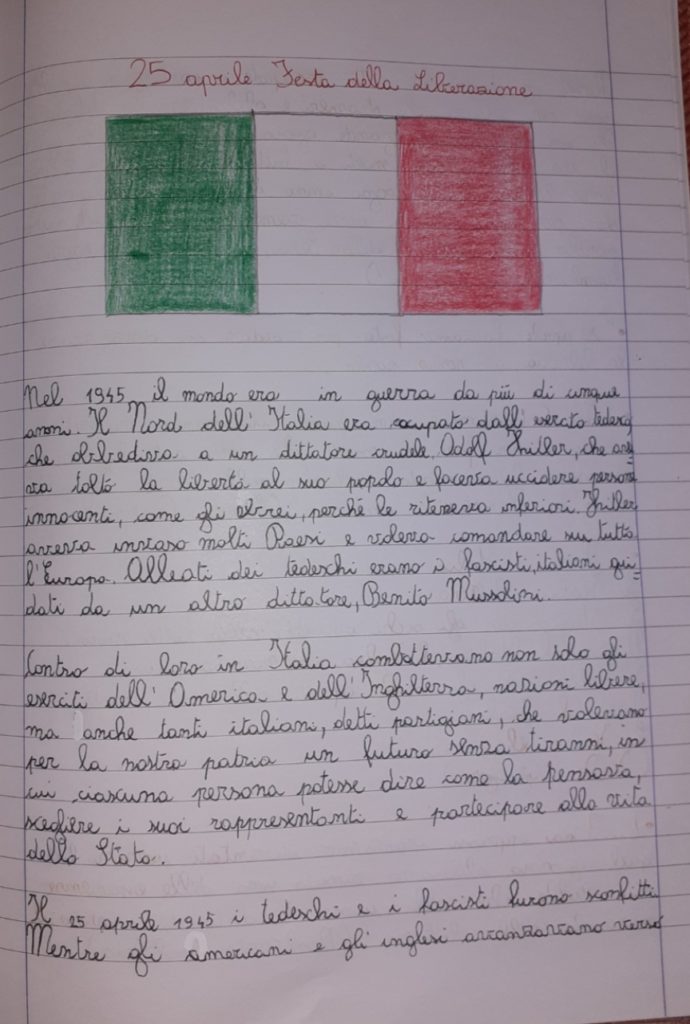 25 aprile Festa della Liberazione
Nel 1945 il mondo era in guerra da più di cinque
anni. Il Nord dell'Italia era occupato dall'esercito tedesco
che obbediva a un dittatore crudele, Adolf Hitler, che ave=
va tolto la libertà al suo popolo e faceva uccidere persone
innocenti, come gli ebrei, perché le riteneva inferiori. Hitler
aveva invaso molti Paesi e voleva comandare su tutta
l'Europa. Alleati dei tedeschi erano i fascisti italiani gui=
dati da un altro dittatore, Benito Mussolini.
Contro di loro in Italia combattevano non solo gli
eserciti dell'America e dell'Inghilterra, nazioni libere,
ma anche tanti italiani, detti partigiani, che volevano
per la nostra patria un futuro senza tiranni, in
cui ciascuna persona potesse dire come la pensava,
scegliere i suoi rappresentanti e partecipare alla vita
dello Stato.
Il 25 aprile 1945 i tedeschi e i fascisti furono sconfitti.
Mentre gli americani e gli inglesi avanzavano verso